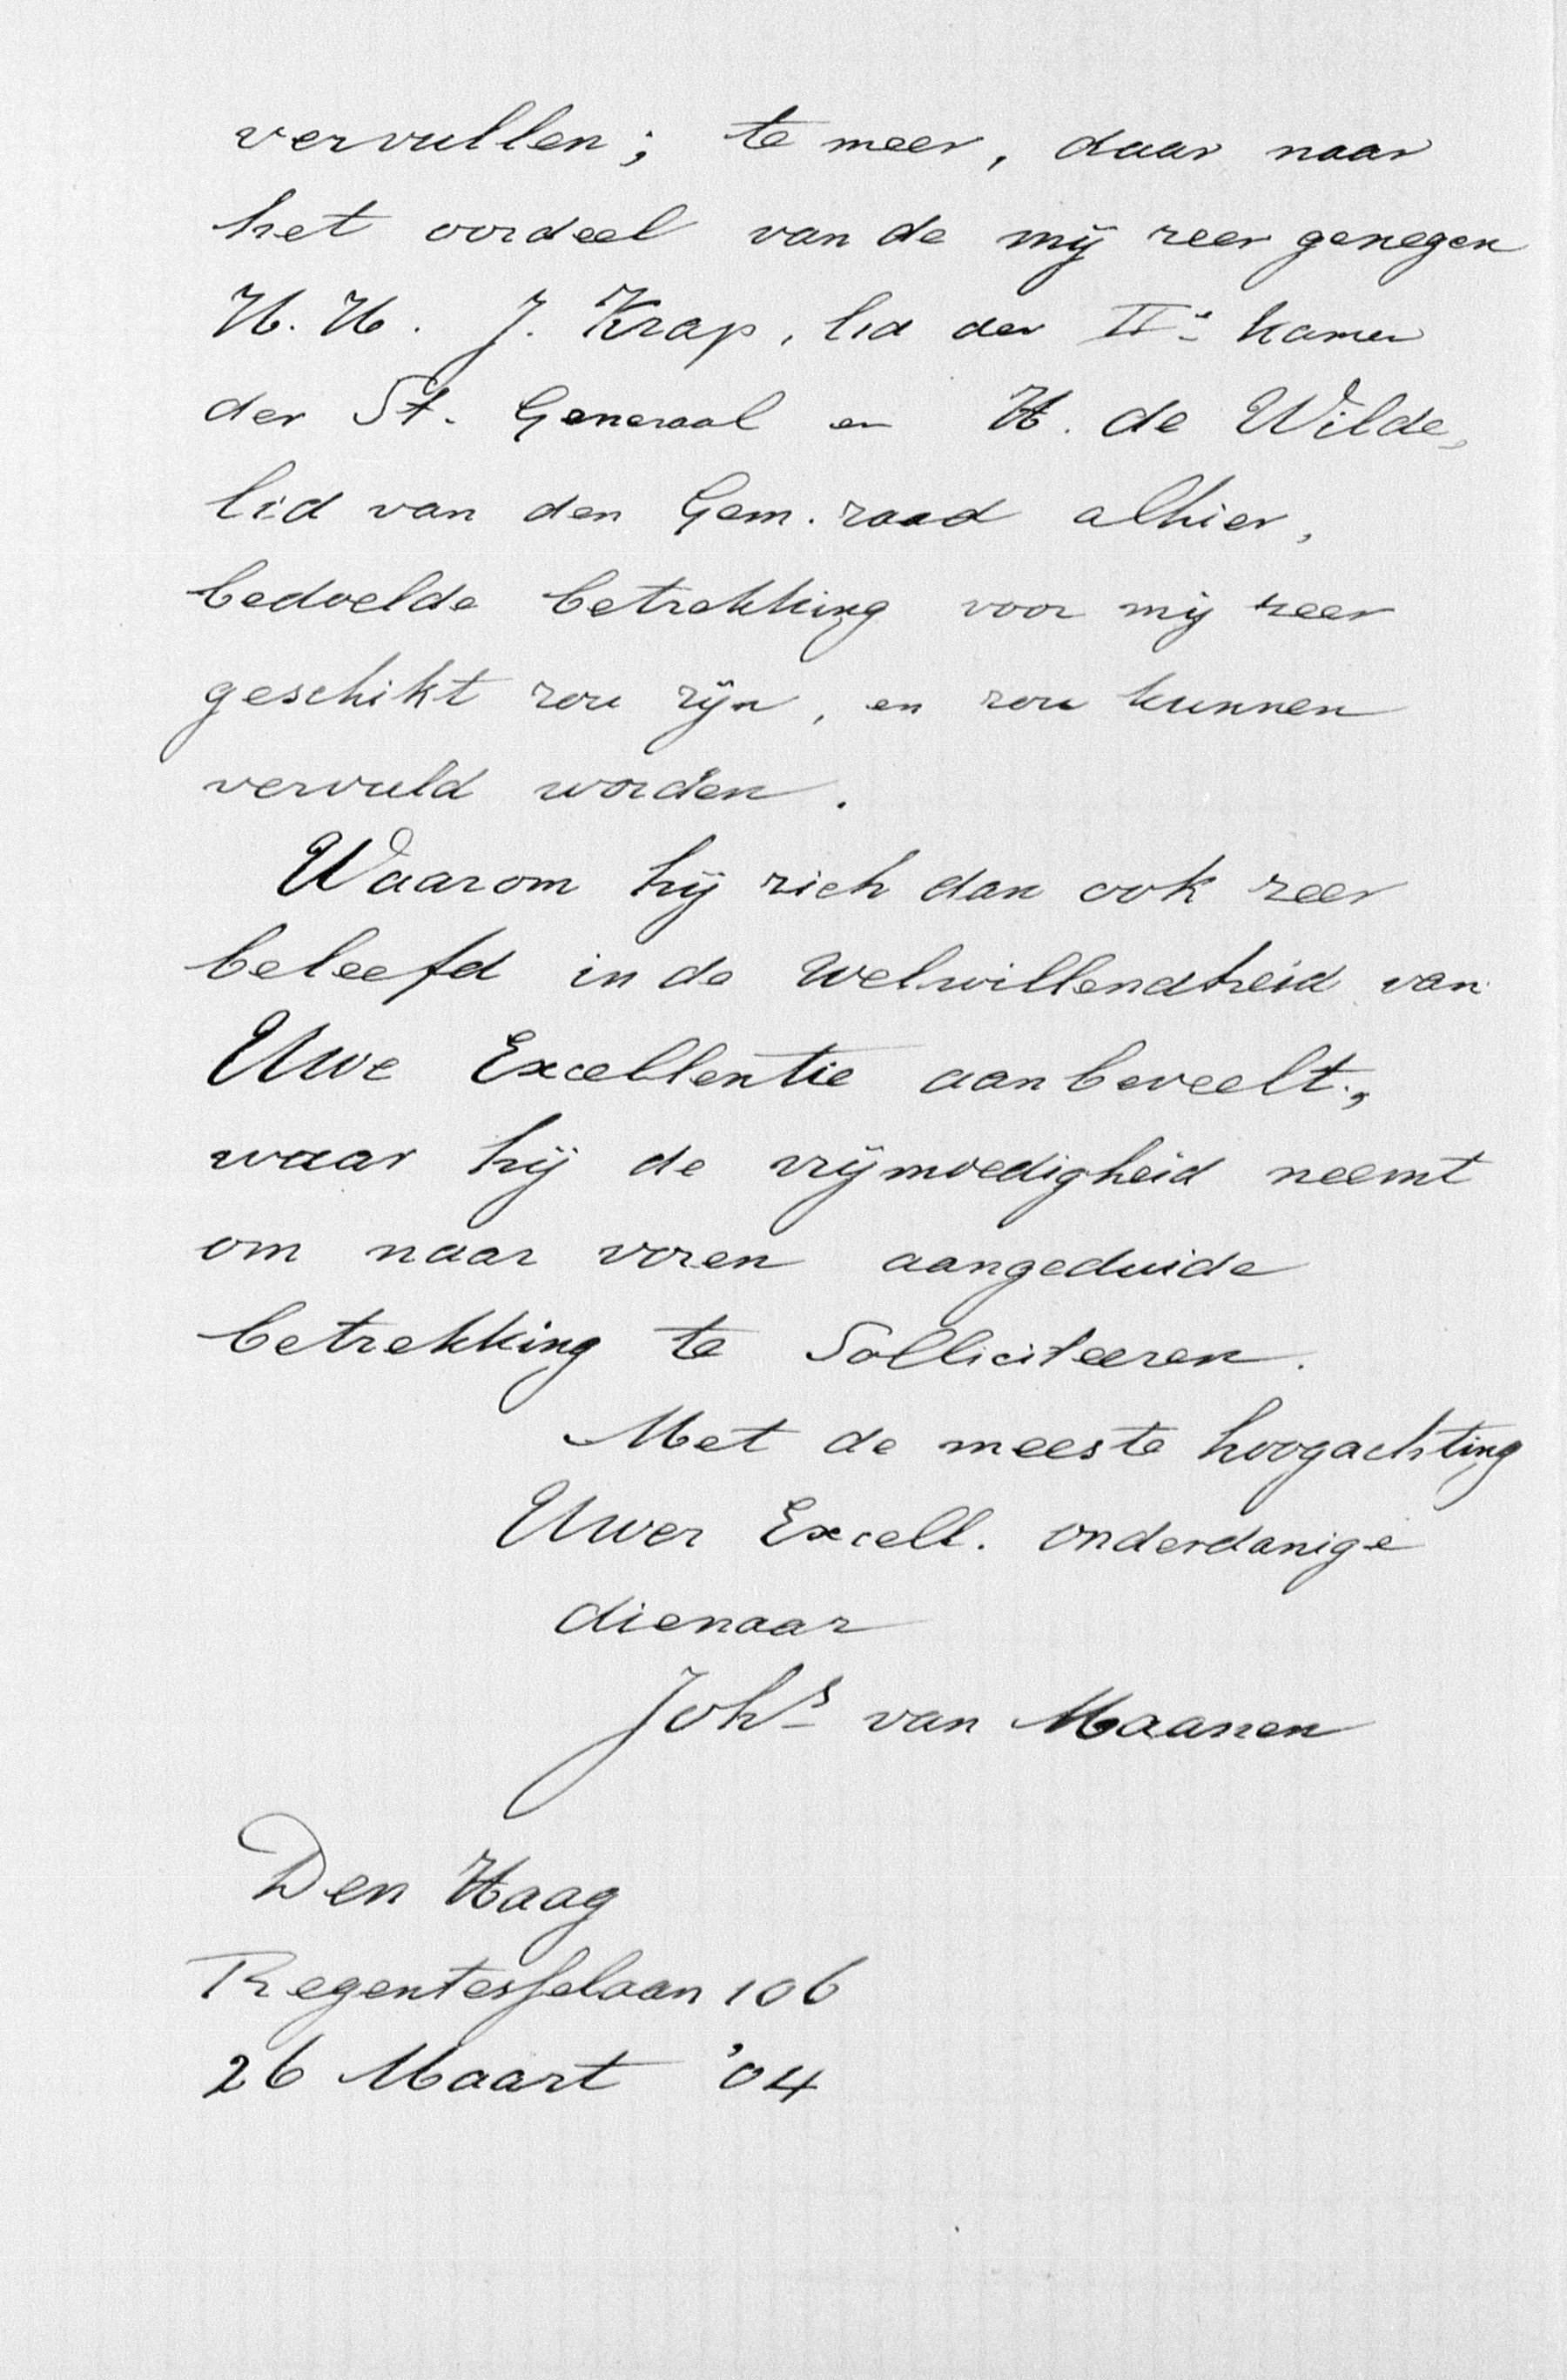 vervullen; te meer, daar naar
het oordeel van de mij zeer genegen
H.H. J. Krap, lid der IIe Kamer
der St. Generaal en H. de Wilde,
lid van den Gem. raad alhier,
bedoelde betrekking voor mij zeer
geschikt zou zijn, en zou kunnen
vervuld worden.
Waarom hij zich dan ook zeer
beleefd in de welwillendheid van
Uwe Excellentie aanbeveelt,
waar hij de vrijmoedigheid neemt
om naar voren aangeduide
betrekking te Solliciteeren.
Met de meeste hoogachting
Uwer Excell. onderdanige
dienaar
Johs van Maanen
Den Haag
Regentesselaan 106
26 Maart '04